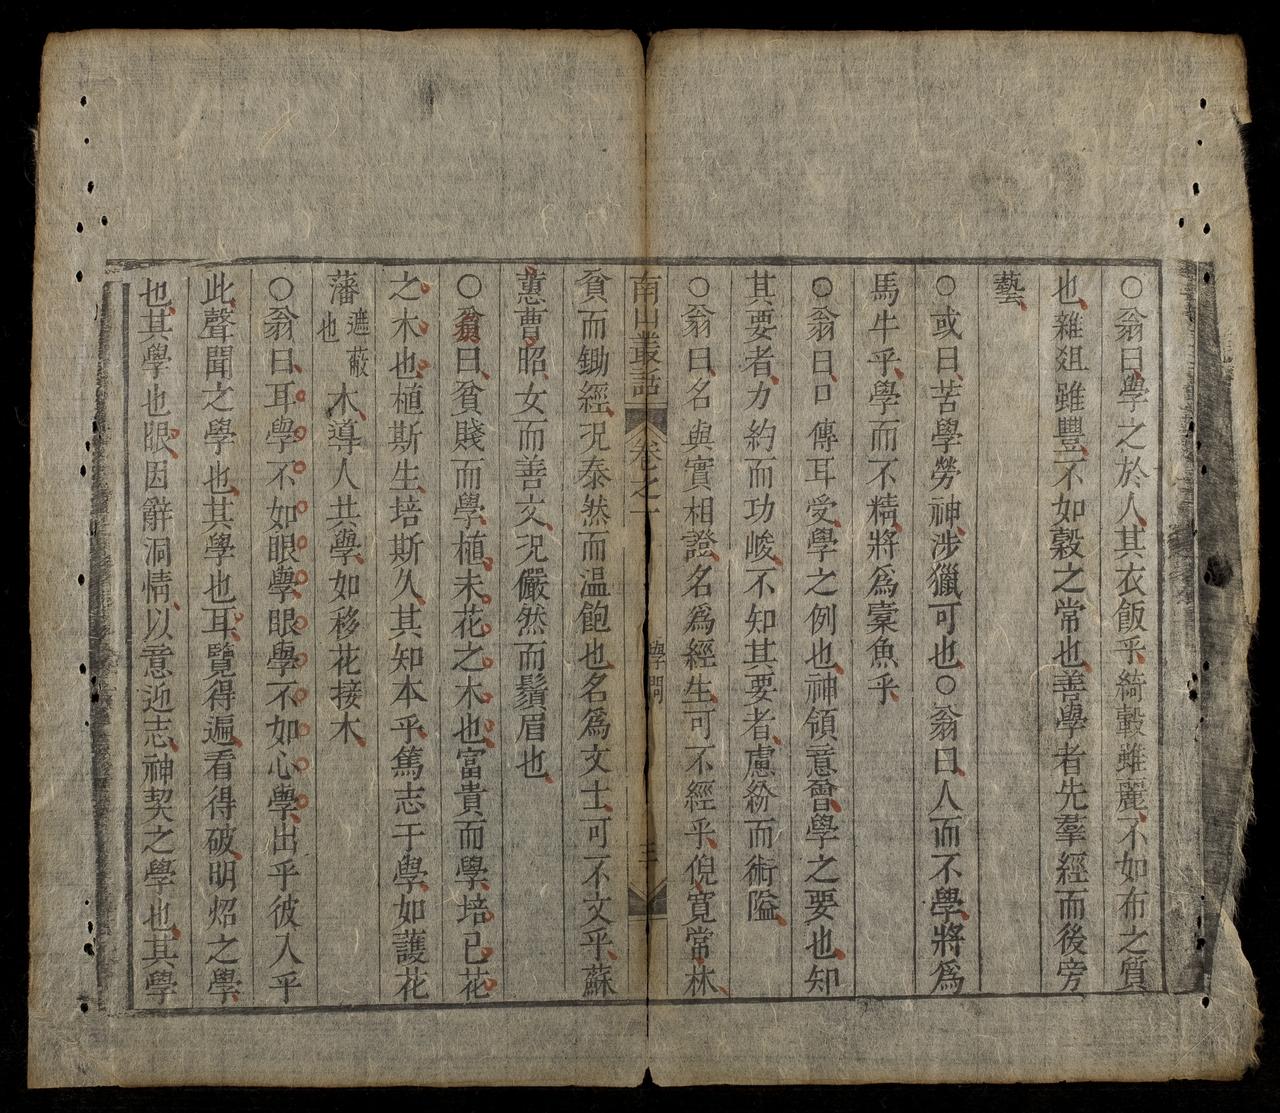 ○翁曰學之於人其衣飯乎綺縠雖麗不如布之質
也雜俎雖豐不如穀之常也善學者先羣經而後旁
藝
○或曰苦學勞神涉獵可也○翁曰人而不學將爲
馬牛乎學而不精將爲蠹魚乎
○翁曰口傳耳受學之例也神領意會學之要也知
其要者力約而功峻不知其要者慮紛而術隘
○翁曰名與實相證名爲經生可不經乎倪寬常林
南山叢話
卷之一
學問
三
貧而鋤經況泰然而温飽也名爲文士可不文乎蘇
蕙曹昭女而善文況儼然而鬚眉也
○翁曰貧賤而學植未花之木也富貴而學培已花
之木也植斯生培斯久其知本乎篤志于學如護花
藩遮蔽也木導人共學如移花接木
○翁曰耳學不如眼學眼學不如心學出乎彼入乎
此聲聞之學也其學也耳覽得遍看得破明炤之學
也其學也眼因辭洞情以意迎志神契之學也其學